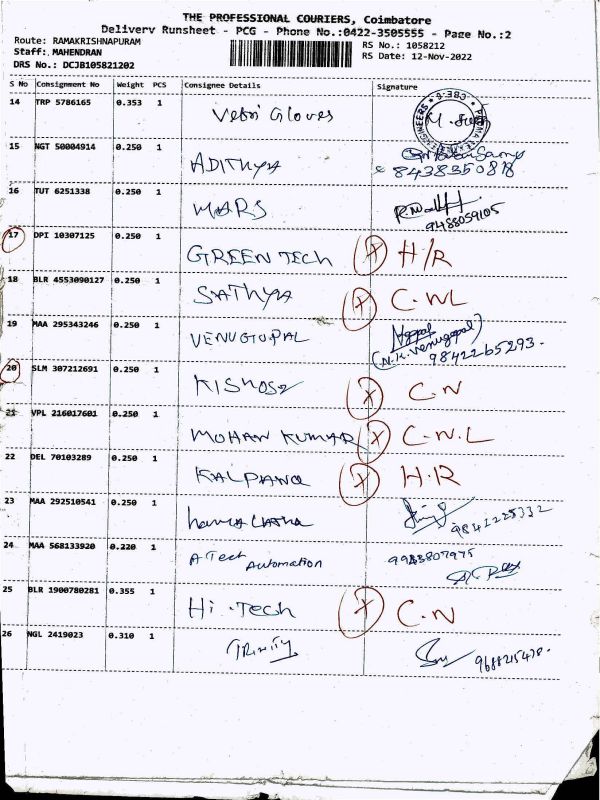 THE PROFESSIONAL COURIERS, Coimbatore
Delivery Runsheet - PCG - Phone No.:0422-3505555 - Page No.:2
Route: RAMAKRISHNAPURAM
RS No.: 1058212
Staff: MAHENDRAN
RS Date: 12-Nov-2022
DRS No.: DCJB105821202
S No Consignment No Weight PCS Consignee Details Signature
14 TRP 5786165 0.353 1 Vetri Gloves
15 NGT 50004914 0.250 1 ADITHYA
8438350818
16 TUT 6251338 0.250 1 MARS
9488059105
17 DPI 10307125 0.250 1 GREEN TECH X H/R
18 BLR 4553090127 0.250 1 SATHYA X C.NL
19 MAA 295343246 0.250 1 VENUGOPAL
(N.K. Venugopal)
9842265293.
20 SLM 307212691 0.250 1 KISHOR X C.N
21 VPL 216017601 0.250 1 MOHAN KUMAR X C.N.L
22 DEL 70103289 0.250 1 KALPANA X H.R
23 MAA 292510541 0.250 1
9842225332
24 MAA 568133920 0.220 1 A Tech Automation 9943807975
25 BLR 1900780281 0.355 1 Hi.Tech X C.N
26 NGL 2419023 0.310 1 TRINITY